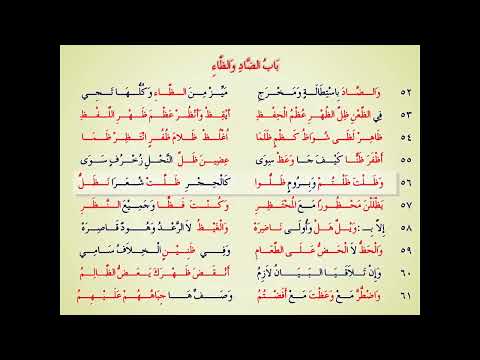 بَابُ الضَّادِ وَالظَّاءِ
٥٢ وَالضَّادَ بِاسْتِطَالَةٍ وَمَخْرَجِ مَيِّزْ مِنَ الظَّاءِ وَكُلُّهَا تَجِي
٥٣ فِي الظَّعْنِ ظِلُّ الظُّهْرِ عُظْمُ الْحِفْظِ أَيْقِظْ وَأَنْظِرْ عَظْمَ ظَهْرِ اللَّفْظِ
٥٤ ظَاهِرْ لَظَى شُوَاظُ كَظْمٍ ظَلَمَا اُغْلُظْ ظَلَامَ ظُفْرٍ انْتَظِرْ ظَمَا
٥٥ أَظْفَرَ ظَنًّا كَيْفَ جَا وَعَظْ سِوَى عِضِينَ ظَلَّ النَّحْلِ زُخْرُفٍ سَوَى
٥٦ وَظَلْتَ ظَلْتُمْ وَبِرُومٍ ظَلُّوا كَالْحِجْرِ ظَلَّتْ شُعَرَا نَظَلُّ
٥٧ يَظْلَلْنَ مَحْظُورًا مَعَ الْمُحْتَظِرِ وَكُنْتَ فَظًّا وَجَمِيعِ النَّظَرِ
٥٨ إِلَّا بِـ: وَيْلٌ هَلْ وَأُولَى نَاضِرَهْ وَالْغَيْظُ لَا الرَّعْدُ وَهُودٌ قَاصِرَهْ
٥٩ وَالْحَظُّ لَا الْحَضُّ عَلَى الطَّعَامِ وَفِي ظَنِينٍ الْخِلَافُ سَامِي
٦٠ وَإِنْ تَلَاقَيَا الْبَيَانُ لَازِمُ أَنْقَضَ ظَهْرَكَ يَعَضُّ الظَّالِمُ
٦١ وَاضْطُرَّ مَعْ وَعَظْتَ مَعْ أَفَضْتُمُ وَصَفِّ هَا جِبَاهُهُمْ عَلَيْهِمُ